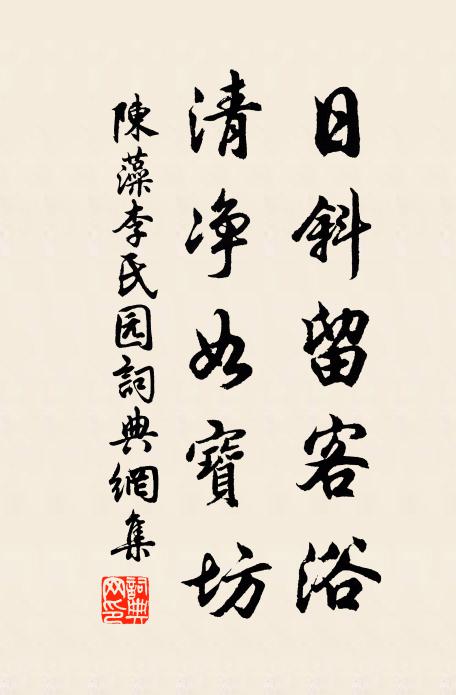 日斜留客浴
清净如寶坊
陳藻李氏园詞典網集
詞典网印